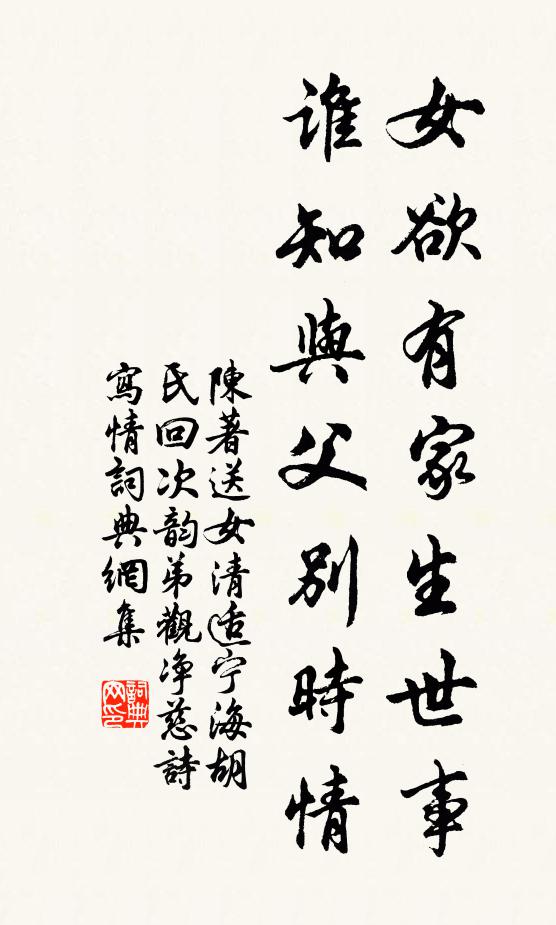 女欲有家生世事
誰知與父別時情
陳著送女清适宁海胡
氏回次韵弟觀净慈詩
寫情詞典網集
詞典网印